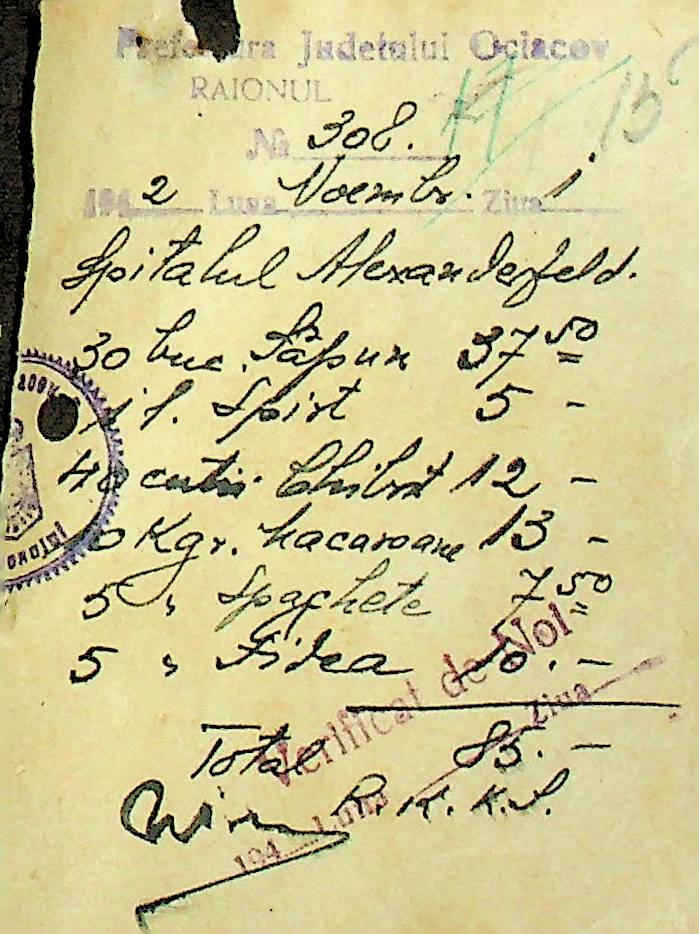 Prefectura Judetului Ociacov
RAIONUL
17 15
№ 308.
194 2 Luna Noembr. Ziua 1
Spitalul Alexanderfeld.
30 buc. Săpun 37 50
1 l. Spirt 5 -
40 cutii Chibrit 12 -
10 Kgr. Macaroane 13 -
5 " Spaghete 7 50
5 " Fidea 10. -
Verificat de Noi
194 Luna Ziua
Total 85. -
R. K. K. S.